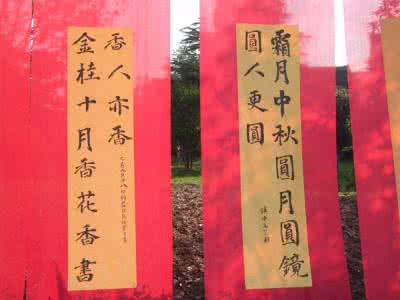 霜月中秋圓月圓鏡
圓人更圓
金桂十月香花香書
香人亦香